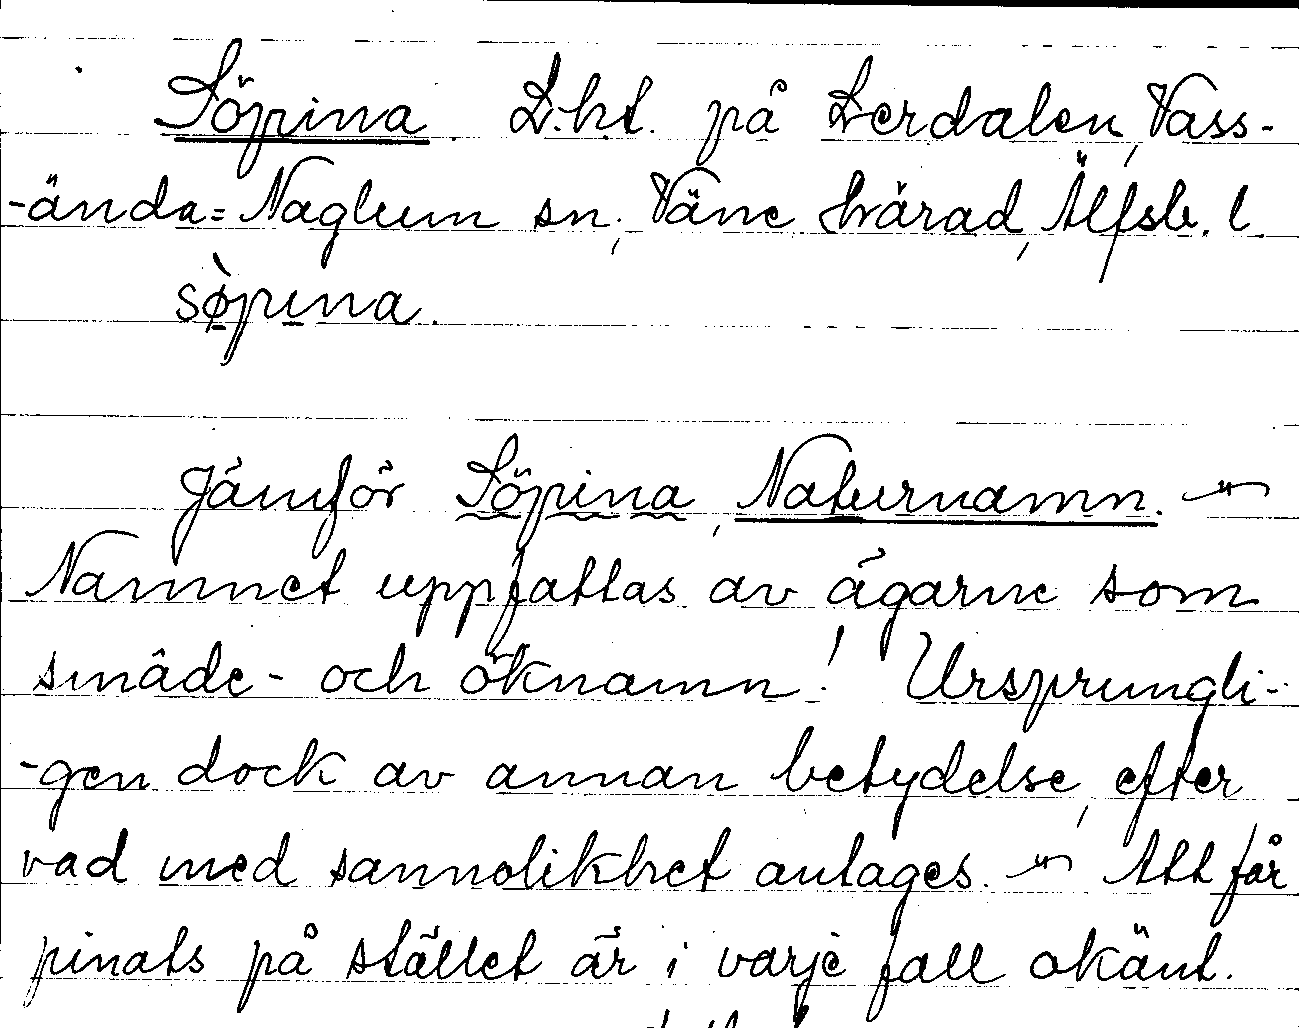 Söpina. L.ht. på Lerdalen, Vass-
-ända-Naglum sn, Väne härad, Älfsb. l.
sø̀pina.
Jämför Söpina, Naturnamn. -"-
Namnet uppfattas av ägarne som
smäde- och öknamn! Ursprungli-
-gen dock av annan betydelse, efter
vad med sannolikhet antages. -"- Att får
pinats på stället är i varje fall okänt.